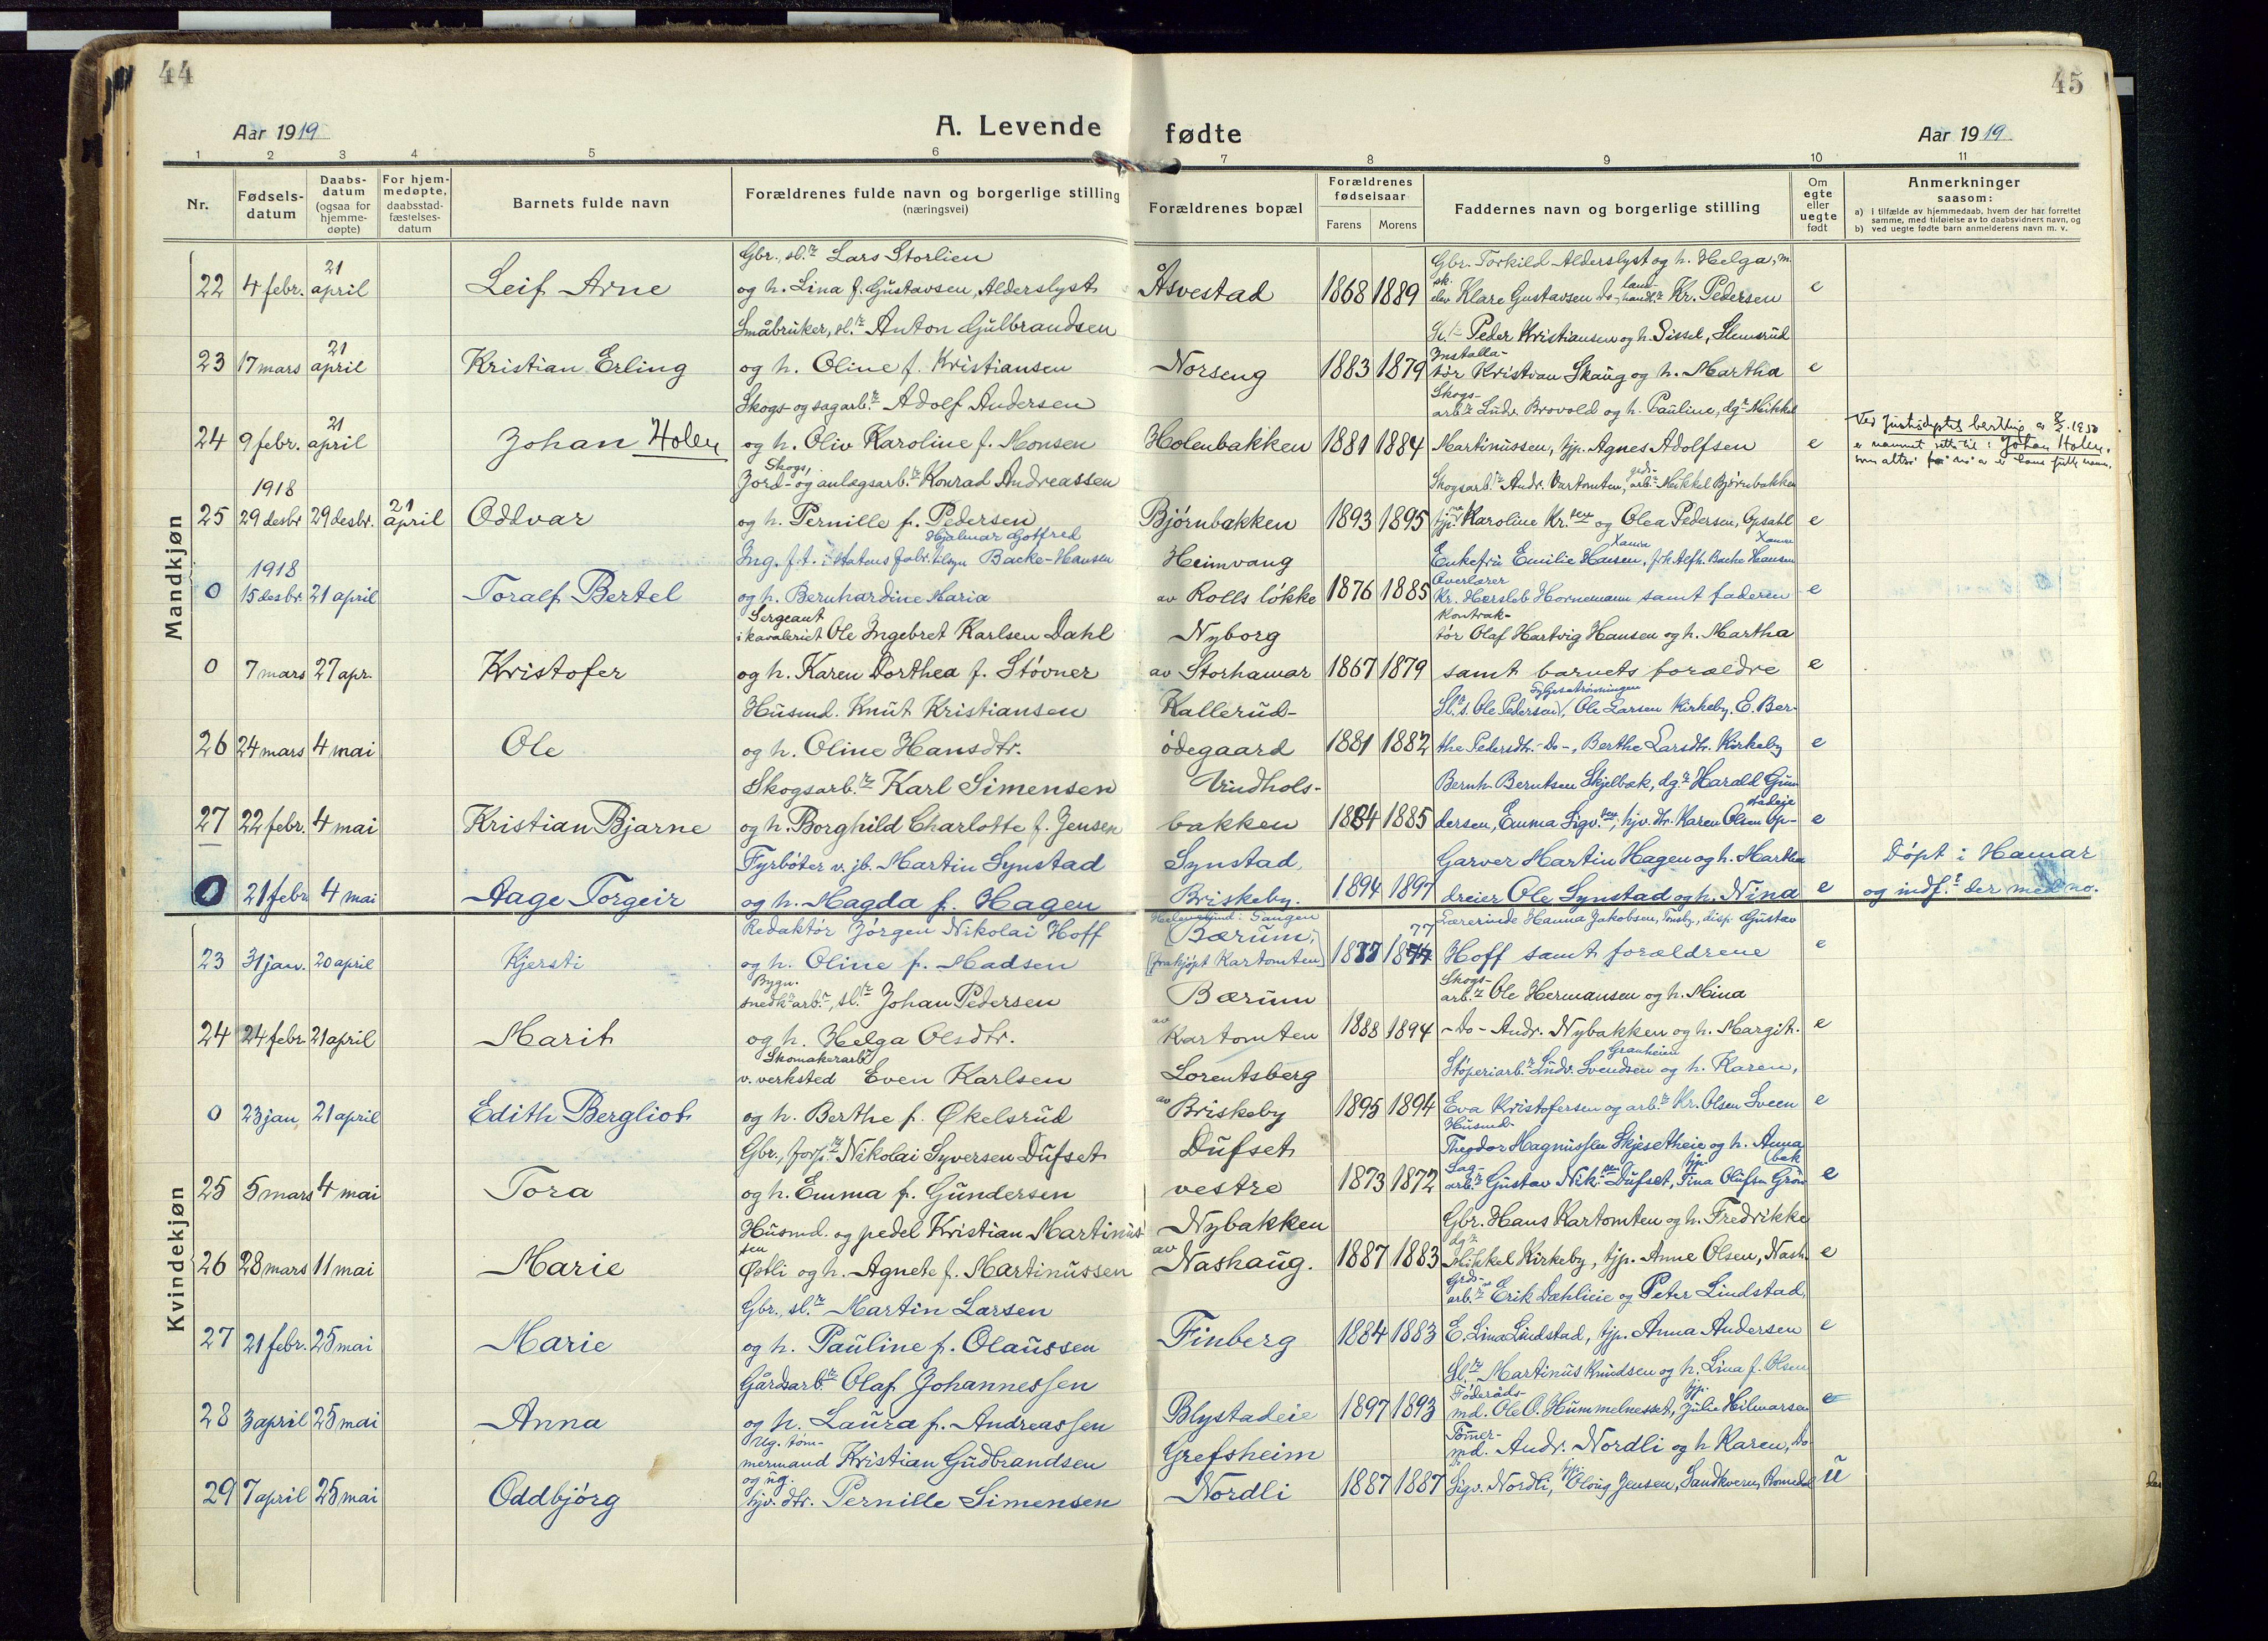 44
45
Aar 1919
A. Levende
fødte
Aar 1919
1 2 3 4 5 6 7 8 9 10 11
Nr.
Fødsels-
datum
Daabs-
datum
(ogsaa for
hjemme-
døpte)
For hjem-
medøpte,
daabsstad-
fæstelses-
datum
Barnets fulde navn
Forældrenes fulde navn og borgerlige stilling
(næringsvei)
Forældrenes bopæl
Forældrenes
fødselsaar
Farens
Morens
Faddernes navn og borgerlige stilling
Om
egte
eller
uegte
født
Anmerkninger
saasom:
a) I tilfælde av hjemmedaab, hvem der har forrettet
samme, med tilføielse av to daabsvidners navn, og
b) ved uegte fødte barn anmelderens navn m. v.
Mandkjøn
Gbr., sl.r Lars Storlien
Gbr. Torkild Alderslyst og h. Helga, m.
22 4 febr. 21 april Leif Arne og h. Lina f. Gustavsen, Alderslyst Åsvestad 1868 1889 elev Klare Gustavsen Do-, landhandl.r Kr. Pedersen e
Småbruker, sl.r Anton Gulbrandsen
Sl.r Peder Kristiansen og h. Sissel, Slemsrud
23 17 mars 21 april Kristian Erling og h. Oline f. Kristiansen Norseng 1883 1879 Installa-
tør Kristian Skaug og h. Martha e
Skogs- og sagarb.r Adolf Andersen
Skogs-
arb.r Ludv. Brovold og h. Pauline, dg.r Mikkel
24 9 febr. 21 april Johan Holen og h. Oliv Karoline f. Monsen Holenbakken 1881 1884 Martinussen, tjp. Agnes Adolfsen e
er navnet rettet til: Johan Holen,
Skogs,
Jord- og anlægsarb.r Konrad Andreassen
Skogsarb.r Andr. Kartomten, grds-arb.r Mikkel Bjørnbakken
1918
25 29 desbr 29 desbr. 21 april Oddvar og h. Pernille f. Pedersen Bjørnbakken 1893 1895 tjp. Karoline Kr.sen og Olea Pedersen, Opsahl e
Hjalmar Gotfred
Ing. f.t. i statens fabr.tilsyn Backe-Hansen
Heimvang
Enkefru Emilie Hansen, frk Alfh. Backe Hansen
1918
0 15 desbr. 21 april Toralf Bertel og h. Bernhardine Maria av Rolls løkke 1876 1885 Overlærer
Kr. Hersleb Hornemann samt faderen e
Sergeant
i kavaleriet Ole Ingebret Karlsen Dahl
Nyborg
Kontrak-
tør Olaf Hartvig Hansen og h. Martha
0 7 mars 27 apr. Kristofer og h. Karen Dorthea f. Støvner av Storhamar 1867 1879 samt barnets forældre e
Husmd. Knut Kristiansen
Kallerud-
Sl.r s. Ole Pedersen, Ole Larsen Kirkeby, E. Ber-
26 24 mars 4 mai Ole og h. Oline Hansdtr. ødegaard 1881 1882 the Pedersdtr. -Do-, Berthe Larsdtr. Kirkeby e
Skogsarb.r Karl Simensen
Bernh. Berntsen Skjelbæk, dg.r Harald Gun
27 22 febr. 4 mai Kristian Bjarne og h. Borghild Charlotte f. Jensen bakken 1884 1885 dersen, Emma Sigv.sen, hjv. dtr. Karen Olsen Op-
stadeie e
Fyrbøter v. jb. Martin Synstad
Synstad,
Garver Martin Hagen og h. Martha
Døpt i Hamar
0 21 febr 4 mai Aage Torgeir og h. Magda f. Hagen Briskeby. 1894 1897 dreier Ole Synstad og h. Nina e og indf.t der med no.
Kvindekjøn
Redaktør Jørgen Nikolai Hoff
Bærum,
Lærerinde Hanna Jakobsen, disp. Gustav
23 31 jan. 20 april Kjersti og h. Oline f. Madsen [frakjøpt Kartomten] 1877 77 Hoff samt forældrene e
Bygn.
snedk.arb.r, sl.r Johan Pedersen
Bærum
Skogs-
arb.r Ole Hermansen og h. Mina
24 24 febr. 21 april Marit og h. Helga Olsdtr. av Kartomten 1888 1894 -Do- Andr. Nybakken og h. Margit. e
Skomakerarb.r
v. verksted Even Karlsen
Lorentsberg
Granheim
Støperiarb.r Ludv. Svendsen og h. Karen,
0 23 jan 21 april Edith Bergliot og h. Berthe f. Økelsrud av Briskeby 1895 1894 Eva Kristofersen og arb.r Kr. Olsen Sveen e
Gbr., forp.r Nikolai Syversen Dufset
Dufset
Husmd.
Theodor Magnussen Skjesetheie og h. Anna
25 5 mars 4 mai Tora og h. Emma f. Gundersen vestre 1873 1872 Sag-
arb.r Gustav Nik.sen Dufset, tjp. Tina Olufsen Grøn
bæk e
Husmd. og pedel Kristian Martinus
sen
Nybakken
Gbr. Hans Kartomten og h. Fredrikke
26 28 mars 11 mai Marie Østli og h. Agnete f. Martinussen av Nashaug. 1887 1883 dg.r
Mikkel Kirkeby, tjp. Anne Olsen, Nash. e
Gbr., sl.r Martin Larsen
Grds-
arb.r Erik Dæhlieie og Peter Lindstad,
27 21 febr. 25 mai Marie og h. Pauline f. Olaussen Finberg 1884 1883 E. Lina Lindstad, tjp. Anna Andersen e
Gårdsarb.r Olaf Johannessen
Sl.r Martinus Knudsen og h. Lina f. Olsen
28 3 april 25 mai Anna og h. Laura f. Andreassen Blystadeie 1897 1893 Føderåds-
md. Ole O. Hummelnesset, tjp. Julie Hilmarsen e
Ug. tøm-
mermand Kristian Gudbrandsen
Grefsheim
Tømer-
md. Andr. Nordli og h Karen, Do
29 7 april 25 mai Oddbjørg og ug.
hjv. dtr. Pernille Simensen Nordli 1887 1887 Sigv. Nordli, tjp. Olaug Jensen, Sandkvern, Romedal u